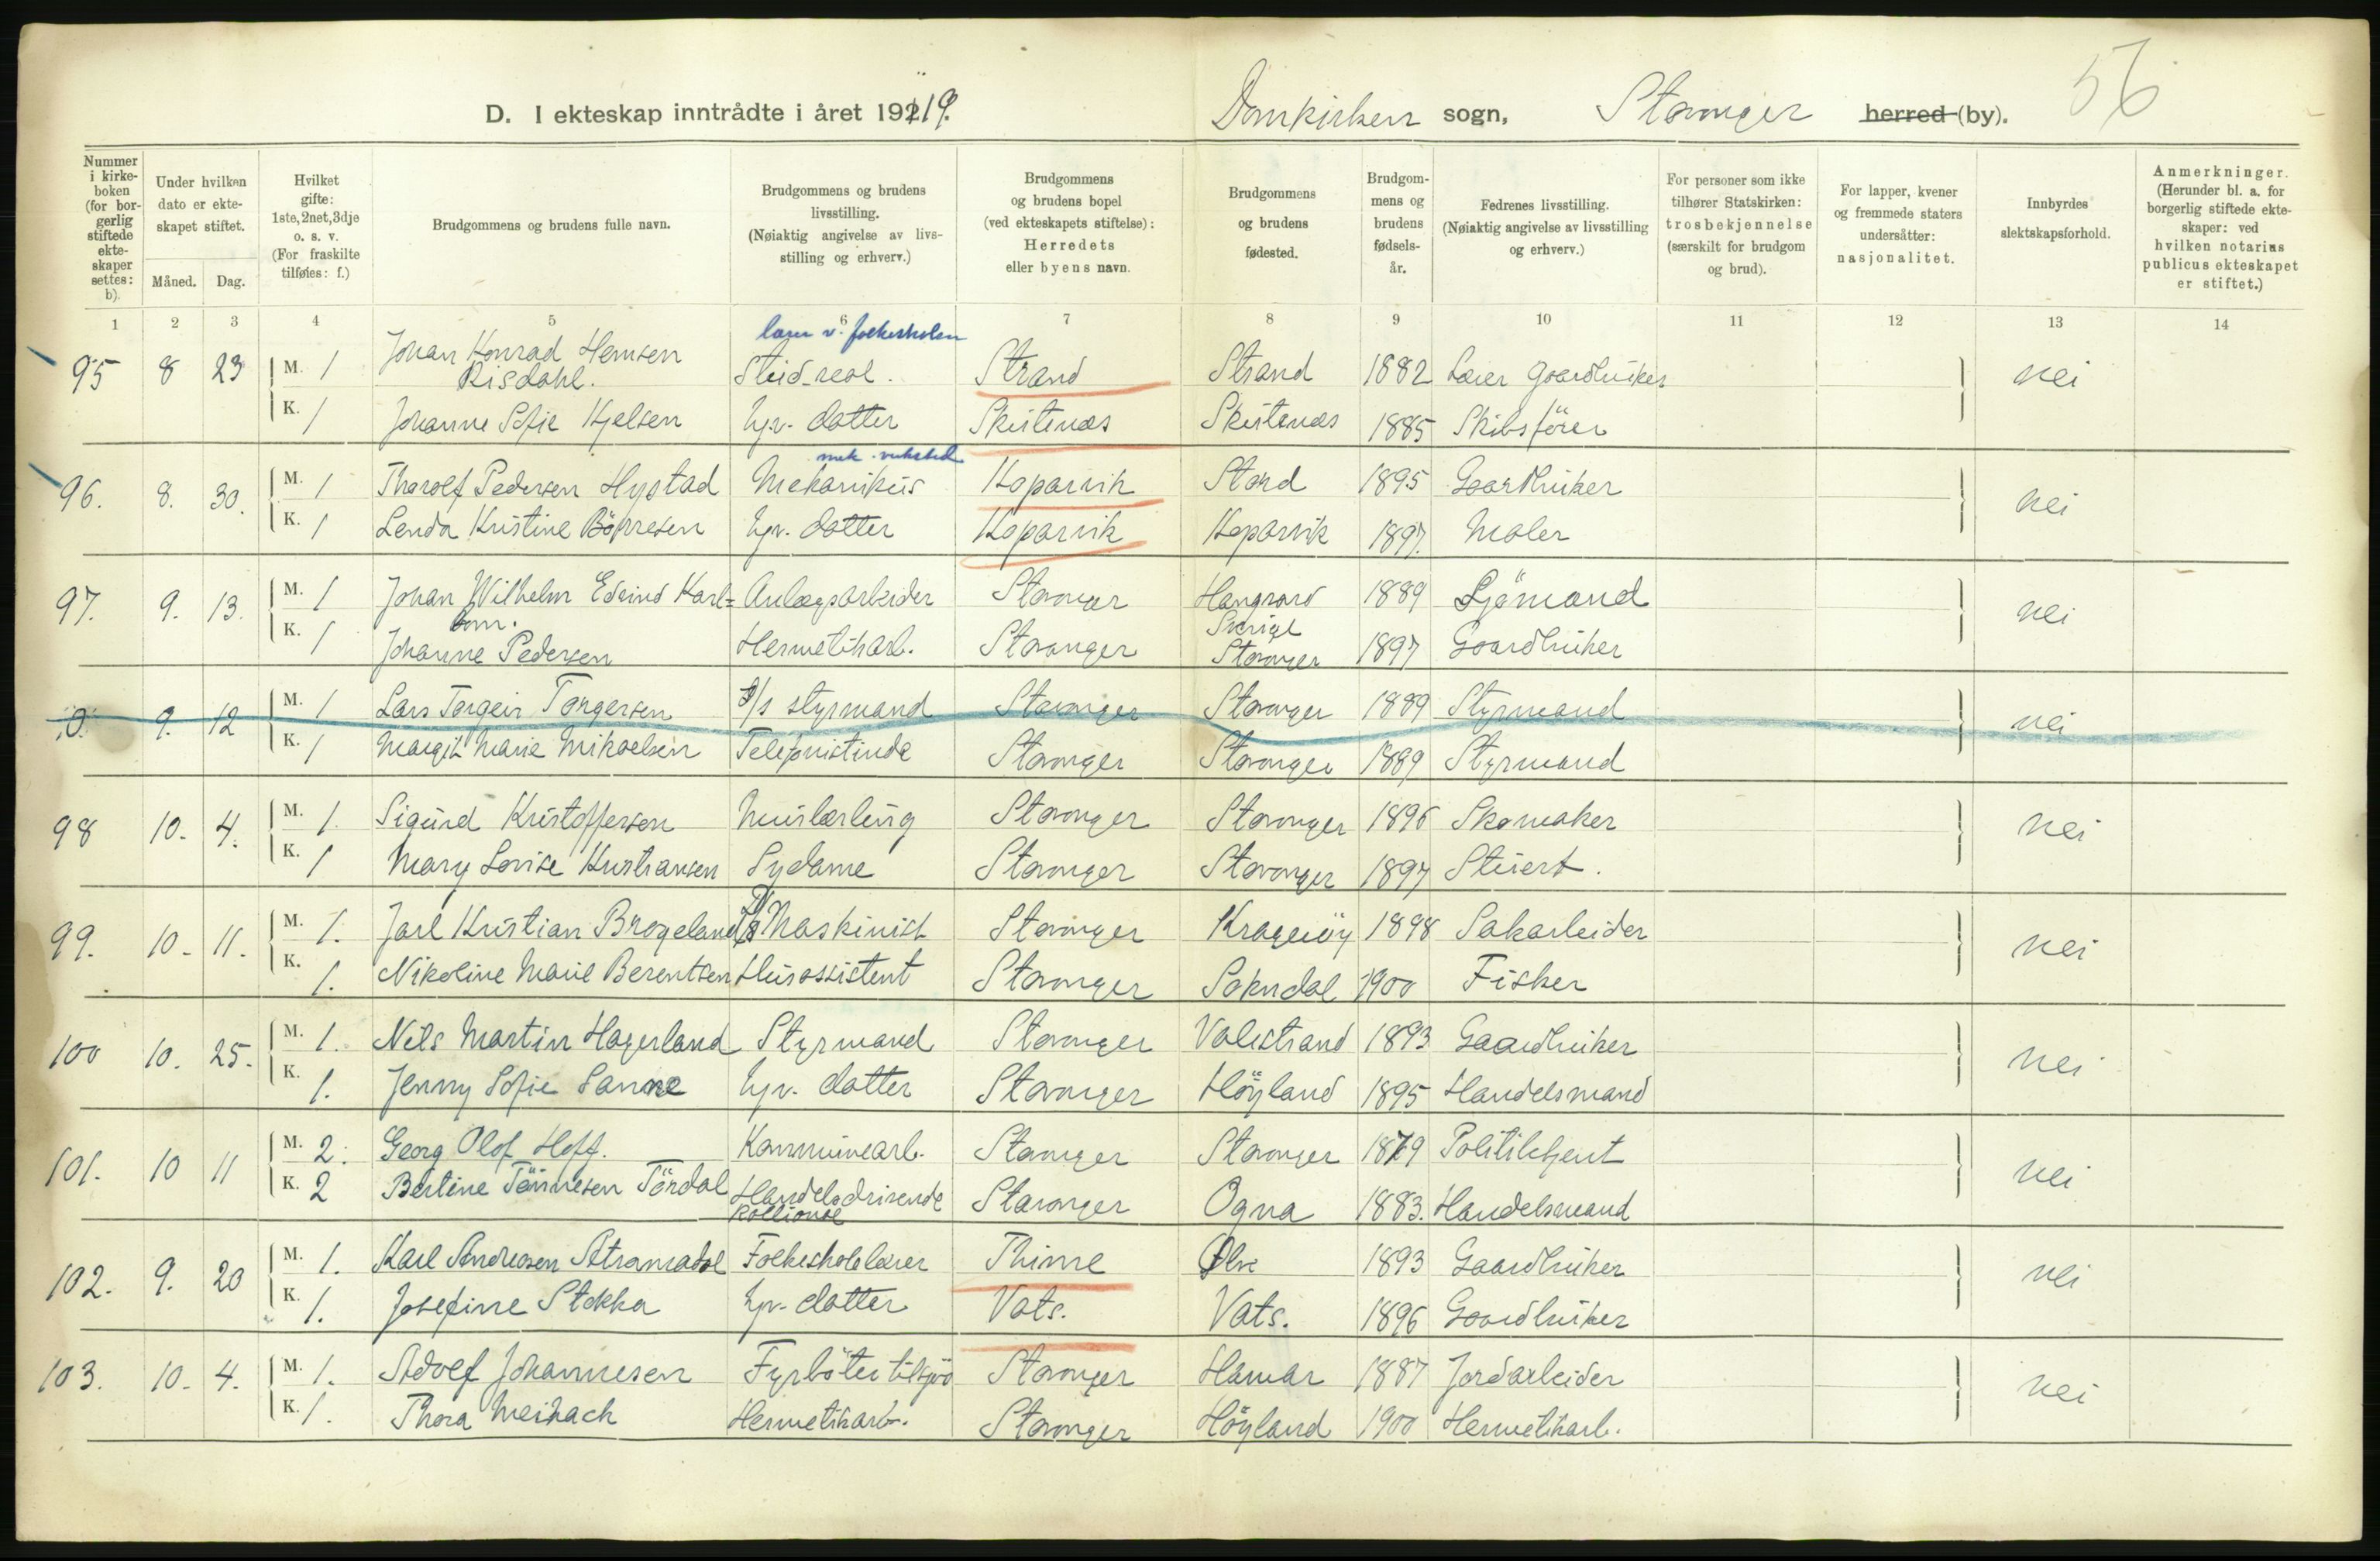 56
D. I ekteskap inntrådte i året 1919. Domkirken sogn, Stavanger herred (by).
Nummer i kirkeboken (for borgerlig stiftede ekteskaper settes: b).
Under hvilken dato er ekteskapet stiftet.
Måned. Dag.
Hvilket gifte: 1ste, 2net, 3dje o. s. v. (For fraskilte tilføies: f.)
Brudgommens og brudens fulle navn.
Brudgommens og brudens livsstilling. (Nøiaktig angivelse av livsstilling og erhverv.)
Brudgommens og brudens bopel (ved ekteskapets stiftelse): Herredets eller byens navn.
Brudgommens og brudens fødested.
Brudgommens og brudens fødselsår.
Fedrenes livsstilling. (Nøiaktig angivelse av livsstilling og erhverv.)
For personer som ikke tilhører Statskirken: trosbekjennelse (særskilt for brudgom og brud).
For lapper, kvener og fremmede staters undersåtter: nasjonalitet.
Innbyrdes slektskapsforhold.
Anmerkninger. (Herunder bl. a. for borgerlig stiftede ekteskaper: ved hvilken notarius publicus ekteskapet er stiftet.)
1 2 3 4 5 6 7 8 9 10 11 12 13 14
lærer v. folkeskolen
95 8 23 M. 1 Johan Konrad Hemsen Risdahl. Stud. real. Strand Strand 1882 Lærer Gaardbruker nei
K. 1 Johanne Sofie Kjelsen hjv. datter Skutenæs Skutenæs 1885 Skibsfører
mek. verksted
96. 8. 30. M. 1 Tharolf Pedersen Hystad Mekanikus Kopervik Stord 1895 Gaardbruker nei
K. 1 Lenda Kristine Børresen hjv. datter Kopervik Kopervik 1897. Maler
97. 9. 13. M. 1 Johan Wilhelm Edvind Karlsom. Anlægsarbeider Stavanger Sverige 1889 Sjømand nei
K. 1 Johanne Pedersen Hermetikarb. Stavanger Stavanger 1897 Gaardbruker
0. 9. 12 M. 1 Lars Torgeir Torgersen D/s styrmand Stavanger Stavanger 1889 Styrmand nei
K. 1 Margit Marie Mikaelsen Telefonistinde Stavanger Stavanger 1889 Styrmand
98 10. 4. M. 1. Sigurd Kristoffersen Murlærling Stavanger Stavanger 1896 Skomaker nei
K. 1 Mary Lovise Kristiansen Sydame Stavanger Stavanger 1897 Stuert.
99. 10. 11. M. 1. Jarl Kristian Brogeland D/s Maskinist Stavanger Kragerøy 1898 Sakarbeider nei
K. 1. Nikoline Marie Berentsen Husassistent Stavanger Sokndal 1900 Fisker
100 10. 25. M. 1. Nils Martin Hagerland Styrmand Stavanger Valestrand 1893 Gaardbruker nei
K. 1. Jenny Sofie Sanne hjv. datter Stavanger Höyland 1895 Handelsmand
101. 10 11 M. 2. Georg Olof Hoff. Kommunearb. Stavanger Stavanger 1879 Politibetjent nei
K. 2 Bertine Tönnesen Tördal Handelsdrivende kolonial Stavanger Ogna 1883. Handelsmand
102. 9. 20 M. 1. Karl Andreasen Atramadal Folkeskolelærer Thime Ølve 1893 Gaardbruker nei
K. 1. Josefine Stokka hjv. datter Vats. Vats. 1896 Gaardbruker
103. 10. 4. M. 1. Adolf Johannesen Fyrböter tilsjøs Stavanger Hamar 1887 Jordarbeider nei
K. 1. Thora Meihack Hermetikarb. Stavanger Höyland 1900 Hermetikarb.